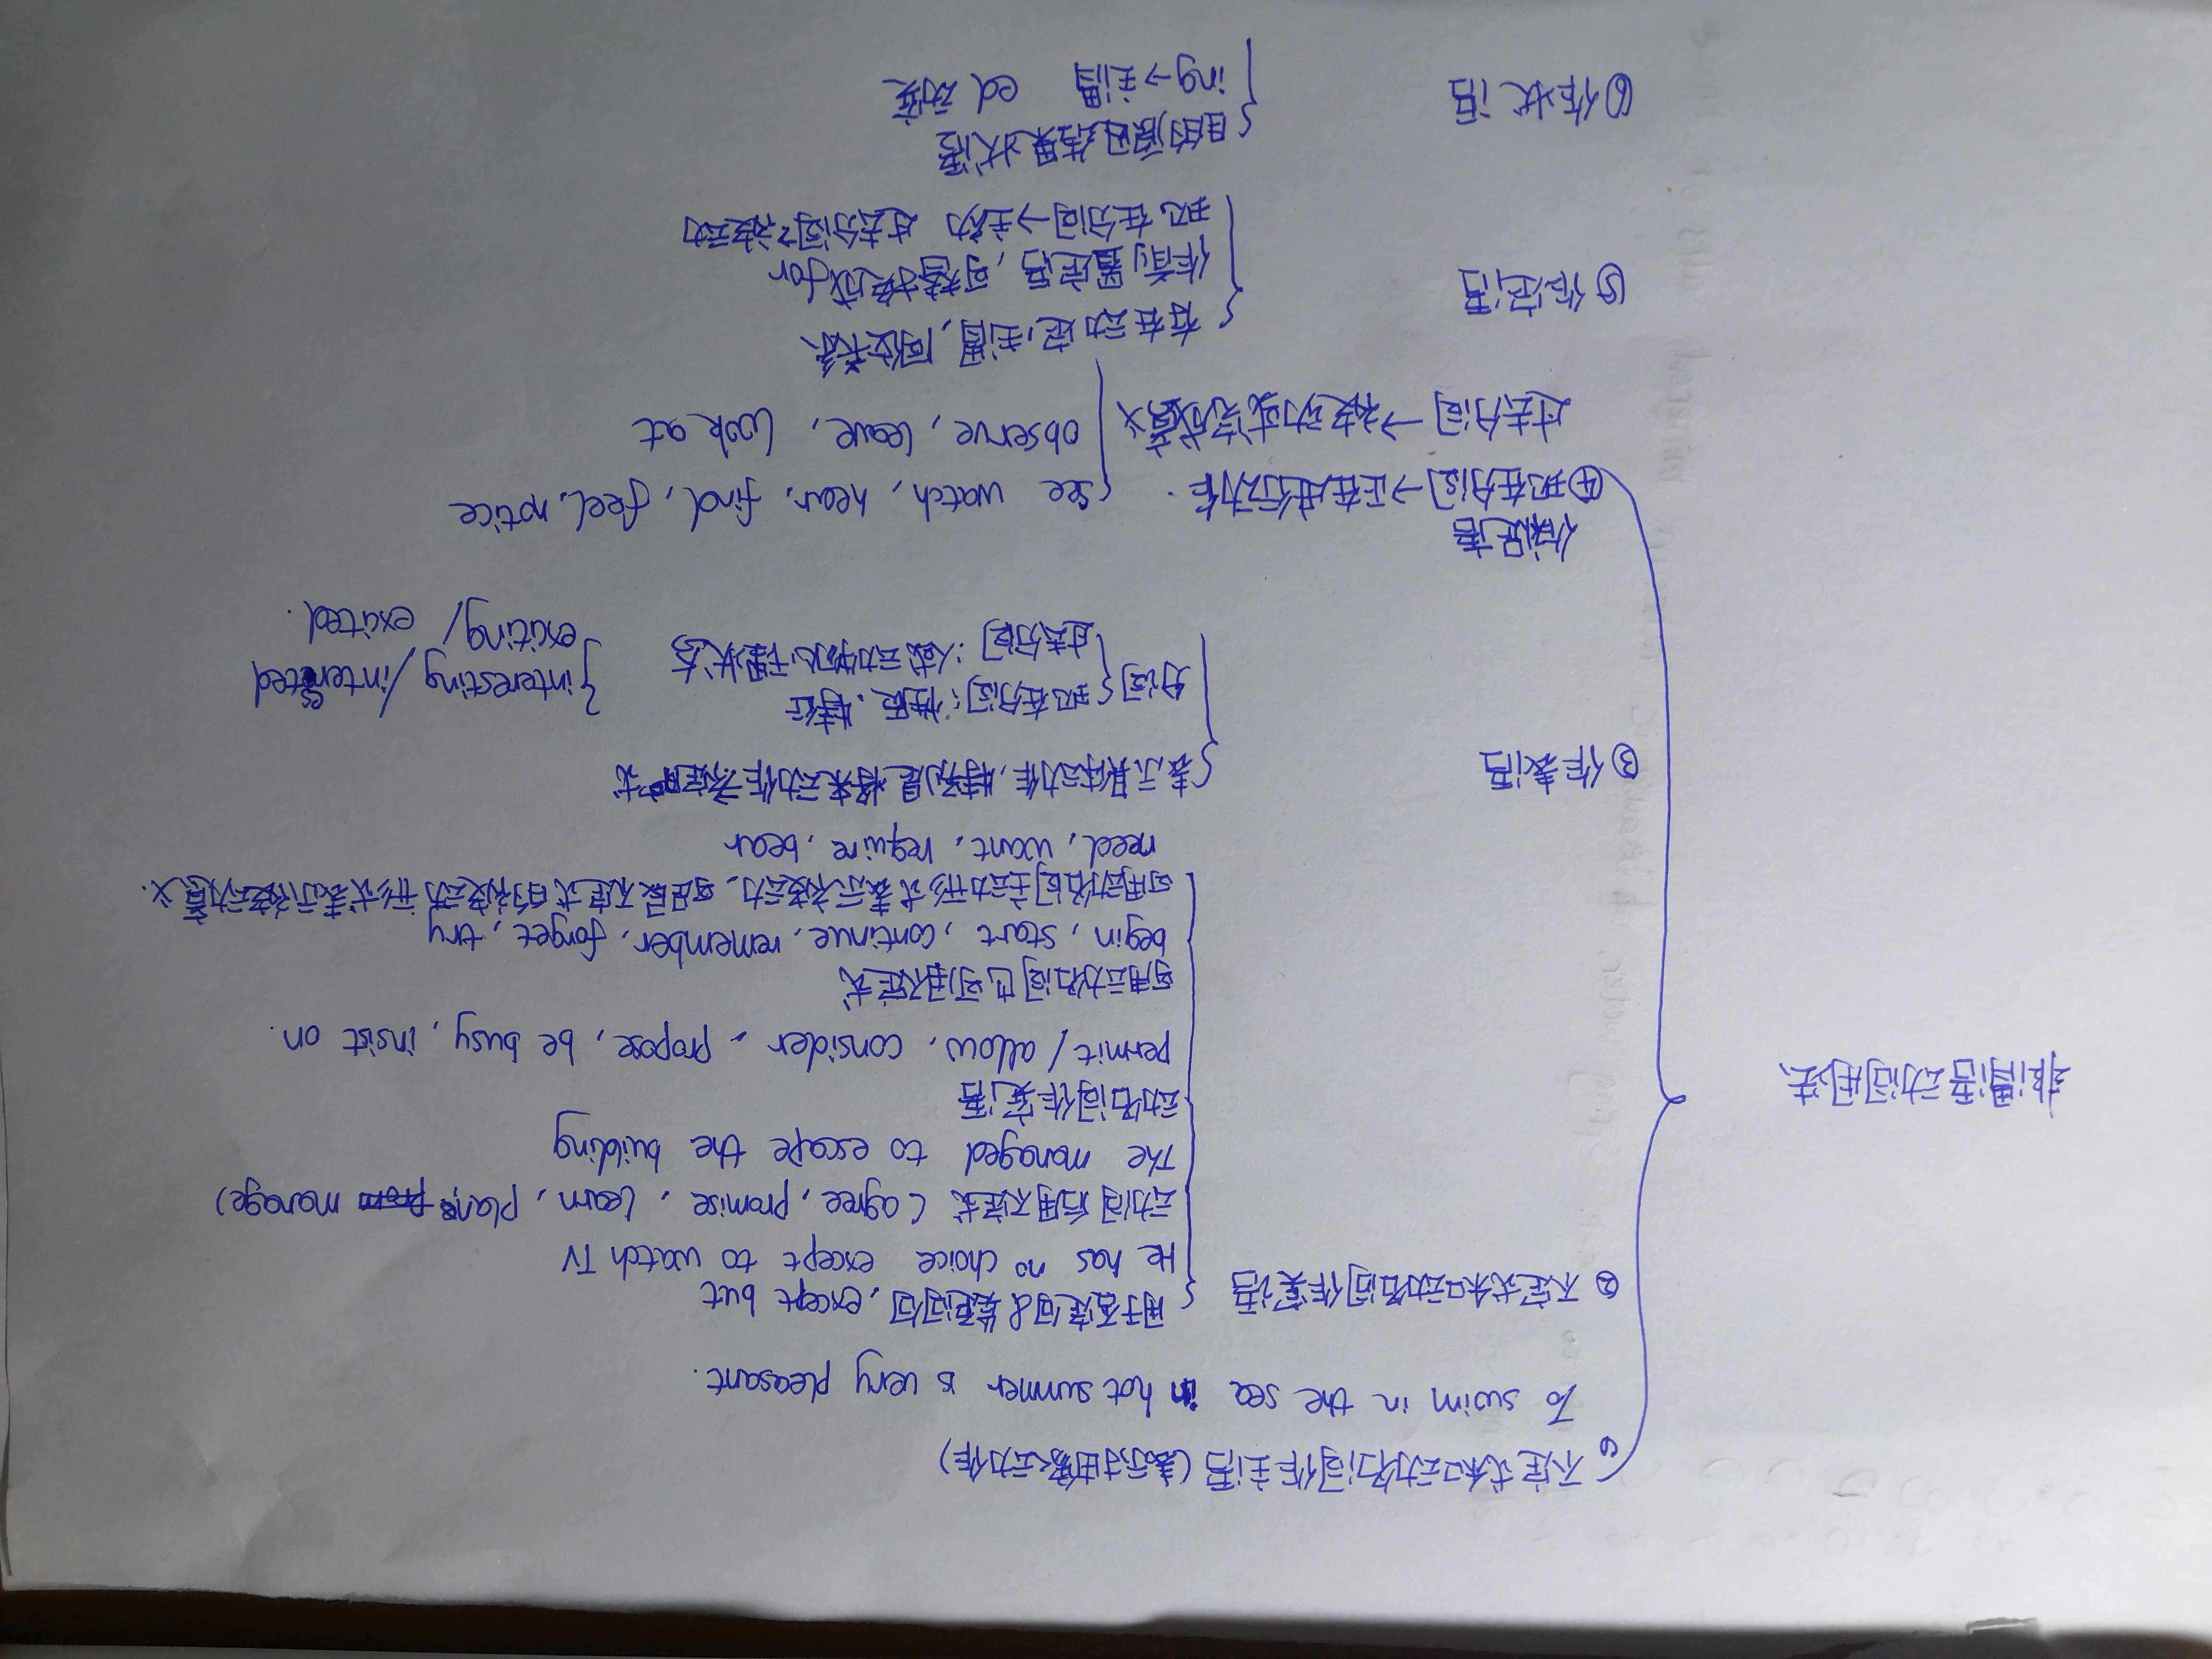 非谓语动词用法
① 不定式和动名词作主语(表示抽象动作)
To swim in the sea in hot summer is very pleasant.
② 不定式和动名词作宾语
用于否定句&疑问句,except but
He has no choice except to watch TV
动词后用不定式 (agree, promise, learn, plan, manage)
The managed to escape the building
动名词作宾语
permit/allow, consider, propose, be busy, insist on.
可用动名词也可用不定式
begin, start, continue, remember, forget, try
可用动名词主动形式表示被动,也可用不定式的被动形式表示被动意义.
need, want, require, bear
③ 作表语
表示具体动作,特别是将来动作 不定式
分词
现在分词:性质、特征
过去分词:人或动物心理状态
interesting/interested
exciting/excited.
作补语
④ 现在分词→正在进行动作.
过去分词→被动或完成意义
see watch, hear, find, feel, notice
observe, leave, look at
⑤ 作定语
存在动宾,主谓,同位关系
作前置定语,可替换成for
现在分词→主动 过去分词→被动
⑥ 作状语
目的原因结果状语
ing→主谓 ed 动宾